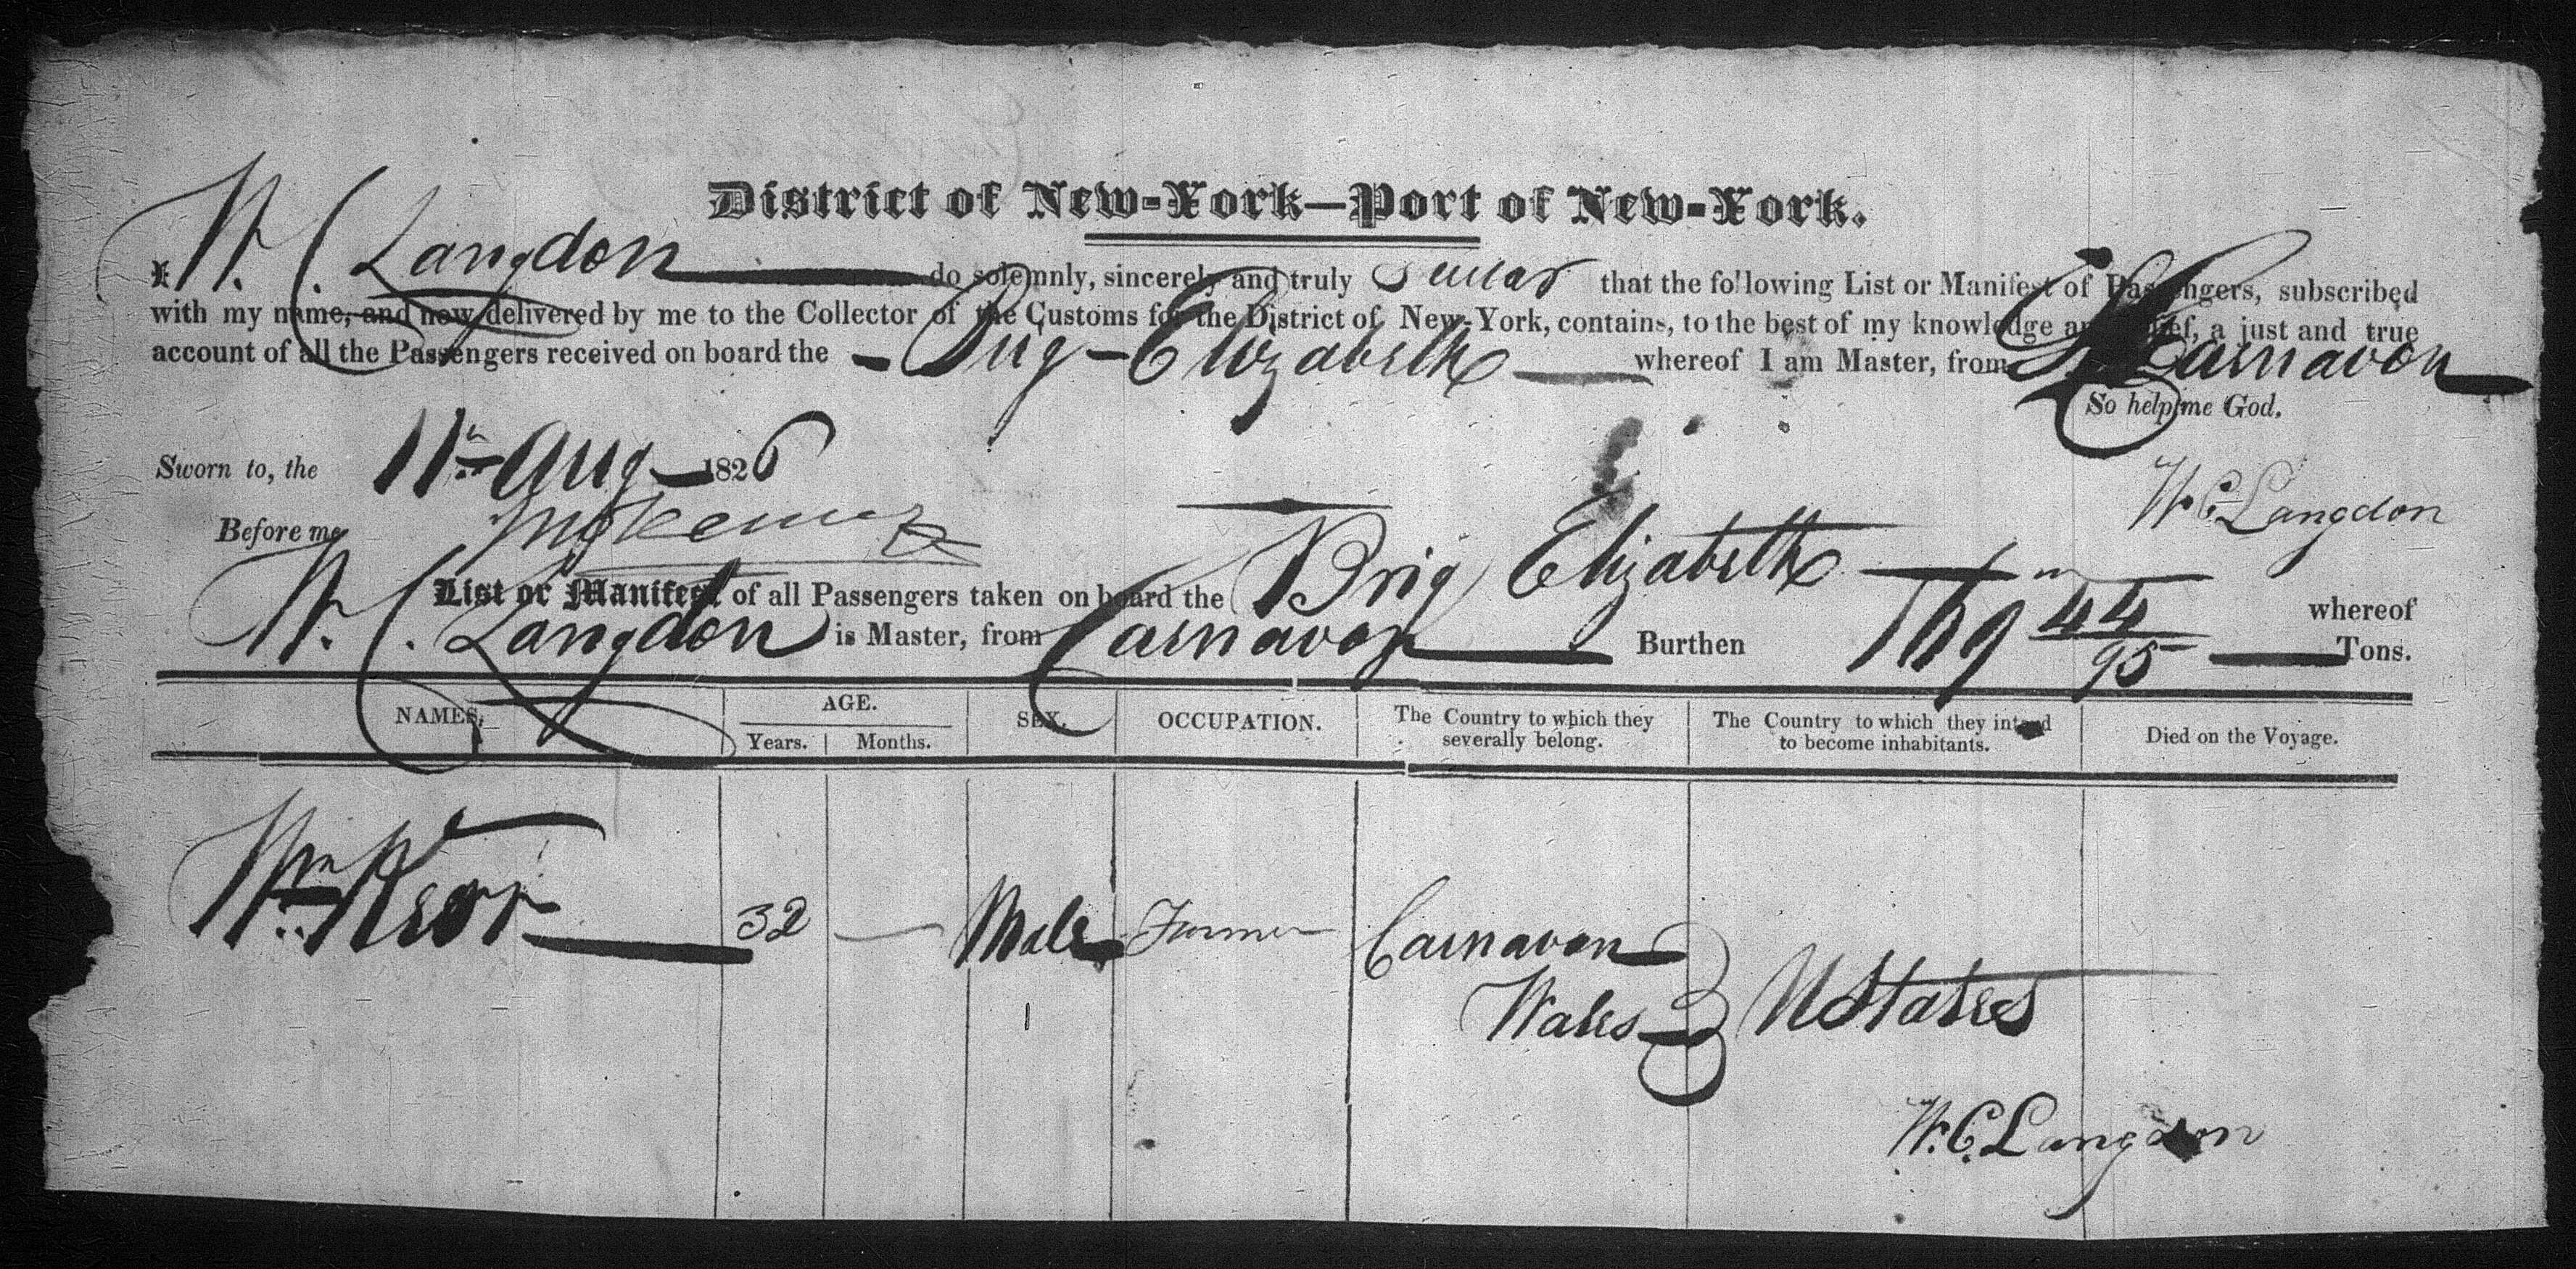 District of New-York—Port of New-York.
I W. C. Langdon do solemnly, sincerely and truly that the following List or Manifest of Passengers, subscribed
with my name, and now delivered by me to the Collector of the Customs for the District of New-York, contains, to the best of my knowledge and belief, a just and true
account of all the Passengers received on board the Brig Elizabeth whereof I am Master, from Carnavon
So help me God.
Sworn to, the 11th Aug 1826
W. C. Langdon
Before me
List or Manifest of all Passengers taken on board the Brig Elizabeth whereof
W. C. Langdon is Master, from Carnavon Burthen 169 44/95 Tons.
NAMES. AGE. SEX. OCCUPATION. The Country to which they severally belong. The Country to which they intend to become inhabitants. Died on the Voyage.
Years. Months.
Wm Kerr 32 — Male Farmer Carnavon
Wales UStates
W. C. Langdon